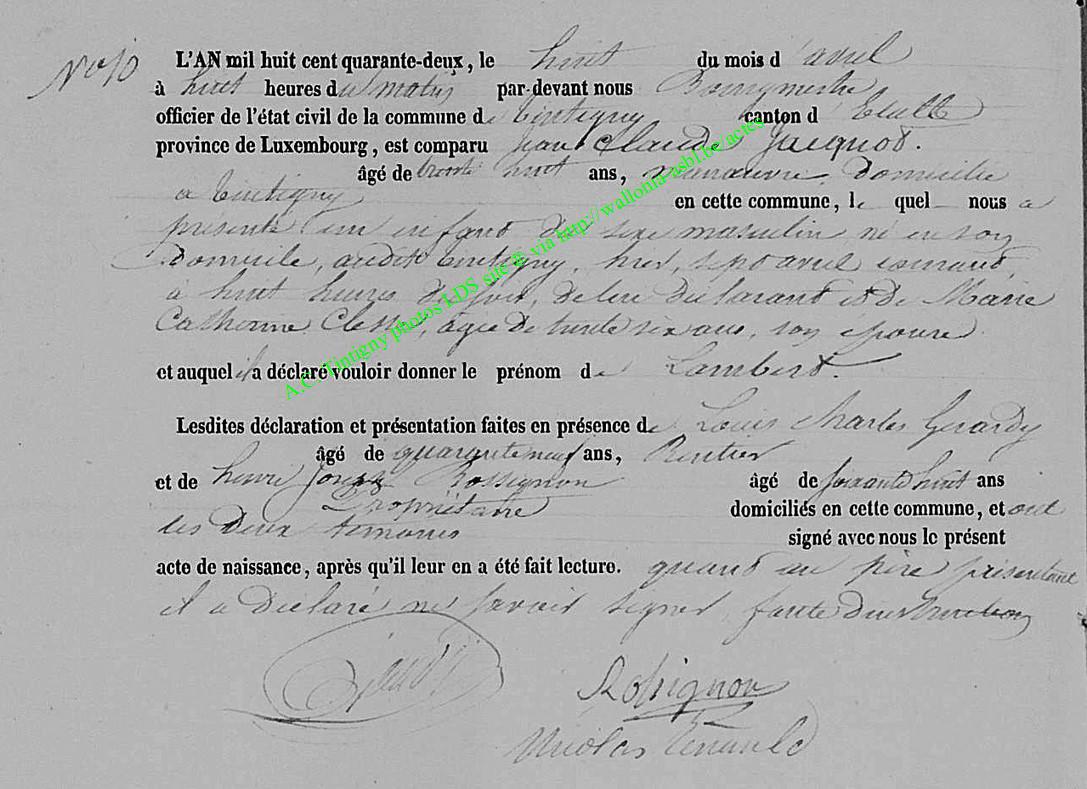 N° 10
L'AN mil huit cent quarante-deux, le huit du mois d'avril
à huit heures du matin par-devant nous Bourgmestre
officier de l'état civil de la commune de Tintigny canton d'Etalle
province de Luxembourg, est comparu Jean Claude Jacquot.
âgé de trente huit ans, manœuvre, domicilié
à Tintigny en cette commune, lequel nous a
présenté un enfant du sexe masculin né en son
domicile, audit Tintigny, hier, sept avril courant,
à huit heures du soir, de lui déclarant et de Marie
Catherine Clesse, âgée de trente six ans, son épouse
et auquel il a déclaré vouloir donner le prénom de Lambert.
Lesdites déclaration et présentation faites en présence de Louis Charles Gerardy
âgé de quarante neuf ans, Rentier
et de henri Joseph Rossignon âgé de soixante huit ans
Propriétaire domiciliés en cette commune, et ont
les deux témoins signé avec nous le présent
acte de naissance, après qu'il leur en a été fait lecture. quant au père présentant
il a déclaré ne savoir signer, faute d'instruction
Rossignon
Nicolas
A.C. Tintigny photos LDS site @ via http://wallonia-asbl.be/actes